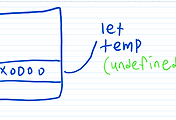 let
temp
(undefined
x0000